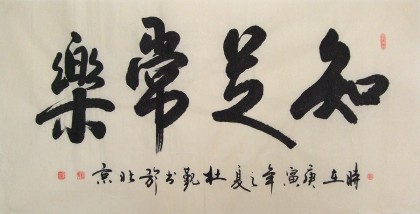 知足常樂
時在庚寅年之夏杜觀書於北京